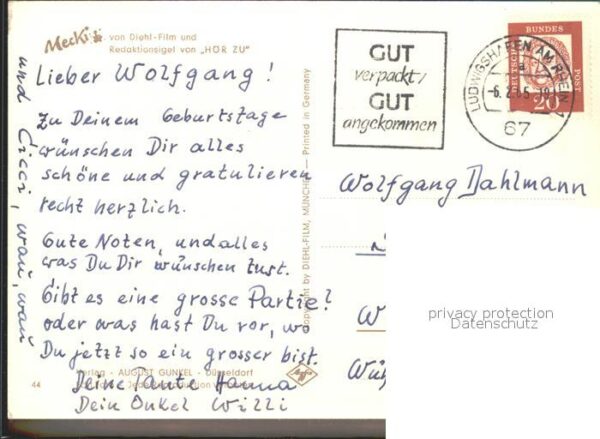 Mecki von Diehl-Film und
Redaktionsigel von „HÖR ZU"
Lieber Wolfgang!
Zu Deinem Geburtstage
wünschen Dir alles
schöne und gratulieren
recht herzlich.
Gute Noten, und alles
was Du Dir wünschen tust.
Gibt es eine grosse Partie?
oder was hast Du vor, wo
Du jetzt so ein grosser bist.
Deine Tante Hanna
Dein Onkel Willi
und Cicci, wau, wau
Verlag - AUGUST GUNKEL - Düsseldorf
44
Copyright by DIEHL-FILM, MÜNCHEN — Printed in Germany
GUT
verpackt/
GUT
angekommen
LUDWIGSHAFEN AM RHEIN
67
DEUTSCHE BUNDESPOST
20
Wolfgang Dahlmann
W
privacy protection
Datenschutz